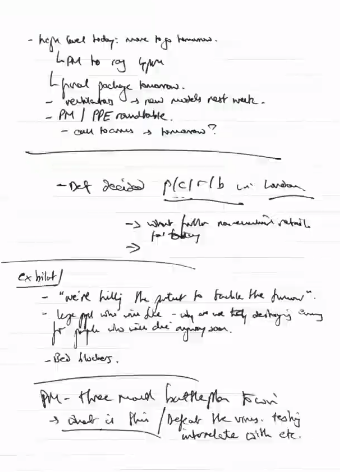 - high level today: more to go tomorrow.
↳ PM to say 4pm
↳ final package tomorrow.
- ventilators → new models next week.
- PM / PPE roundtable.
- call to arms → tomorrow?
- Def decided p/c/r/b in London.
→ what further non-essential retail for today
→
exhibit/
- "we're killing the patient to tackle the tumour".
- large ppl who will die - why are we destroying economy
for people who will die anyway soon.
- Bed blockers.
PM - three month battle plan to win
→ what is this / Defeat the virus. testing
interrelate with etc.